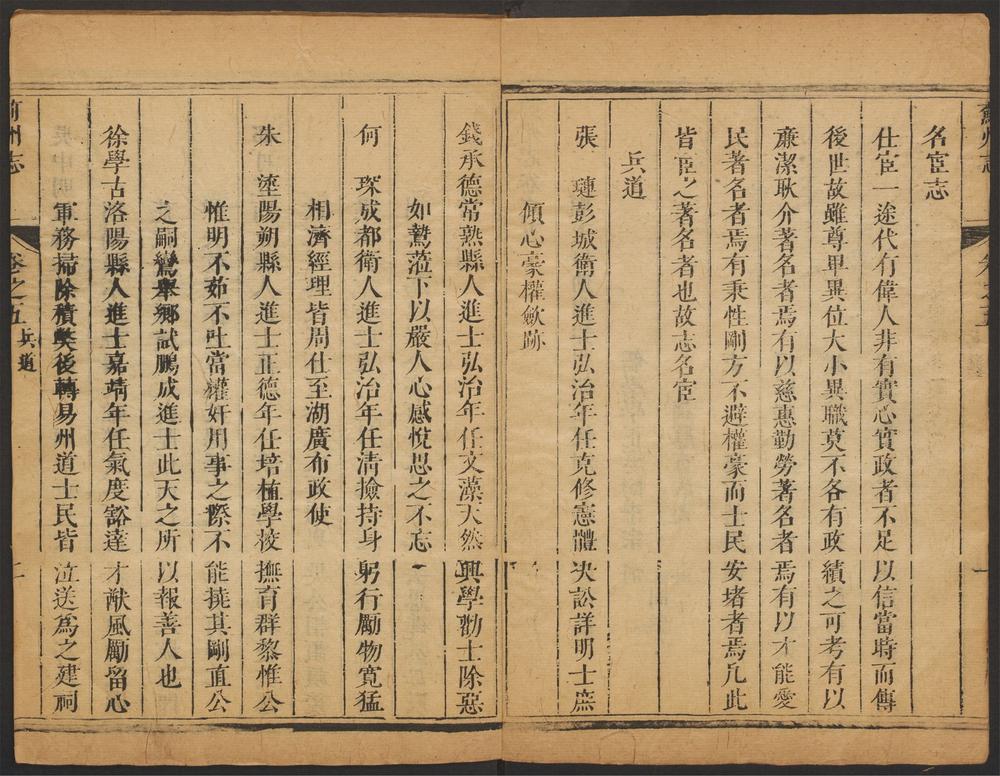 名宦志
仕宦一途代有偉人非有實心實政者不足以信當時而傳
後世故雖尊卑異位大小異職莫不各有政績之可考有以
廉潔耿介著名者焉有以慈惠勤勞著名者焉有以才能愛
民著名者焉有秉性剛方不避權豪而士民安堵者焉凡此
皆宦之著名者也故志名宦
兵道
張 璉彭城衛人進士弘治年任克修憲體決訟詳明士庶
傾心豪權歛跡
錢承德常熟縣人進士弘治年任文藻天然興學勸士除惡
如鷙蒞下以嚴人心感悅思之不忘
何 琛成都衛人進士弘治年任淸撿持身躬行勵物寬猛
相濟經理皆周仕至湖廣布政使
朱 塗陽朔縣人進士正德年任培植學校撫育群黎惟公
惟明不茹不吐當權奸用事之際不能撓其剛直公
之嗣鸞舉鄉試鵬成進士此天之所以報善人也
徐學古洛陽縣人進士嘉靖年任氣度豁達才猷風勵留心
軍務掃除積獘後轉易州道士民皆泣送爲之建祠
州志
卷之五
兵道
二